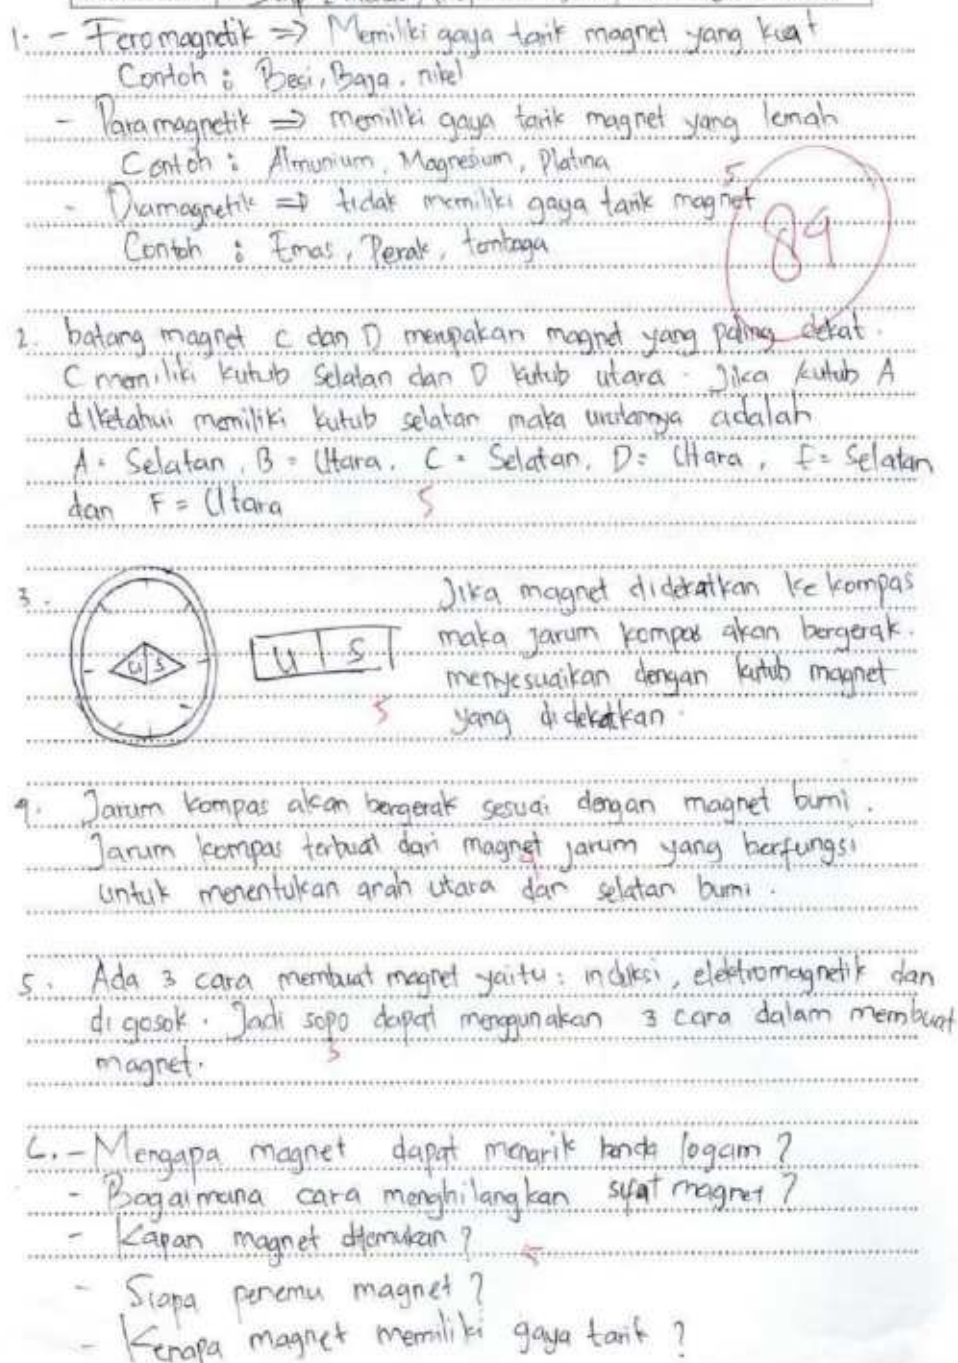 1. - Feromagnetik => Memiliki gaya tarik magnet yang kuat
Contoh : Besi, Baja, nikel
- Paramagnetik => memiliki gaya tarik magnet yang lemah
Contoh : Almunium, Magnesium, Platina
5
- Diamagnetik => tidak memiliki gaya tarik magnet
Contoh : Emas, Perak, tembaga
89
2. batang magnet C dan D merupakan magnet yang paling dekat.
C memiliki kutub Selatan dan D kutub utara. Jika kutub A
diketahui memiliki kutub selatan maka urutannya adalah
A = Selatan, B = Utara, C = Selatan, D = Utara, E = Selatan
dan F = Utara
5
3.
U S
U S
Jika magnet didekatkan ke kompas
maka jarum kompas akan bergerak.
menyesuaikan dengan kutub magnet
yang didekatkan.
5
4. Jarum kompas akan bergerak sesuai dengan magnet bumi.
Jarum kompas terbuat dari magnet jarum yang berfungsi
untuk menentukan arah utara dan selatan bumi.
5. Ada 3 cara membuat magnet yaitu : induksi, elektromagnetik dan
di gosok. Jadi sopo dapat menggunakan 3 cara dalam membuat
magnet.
5
6. - Mengapa magnet dapat menarik benda logam ?
- Bagaimana cara menghilangkan sifat magnet ?
- Kapan magnet ditemukan ?
- Siapa penemu magnet ?
- Kenapa magnet memiliki gaya tarik ?